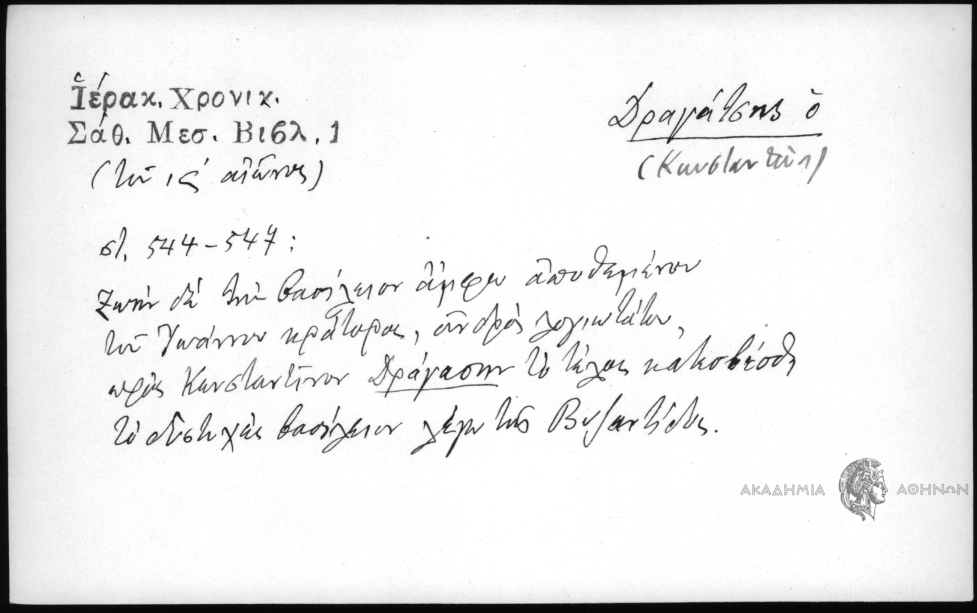 Ἱέρακ. Χρονικ.
Σάθ. Μεσ. Βιβλ. 1
(τοῦ ις' αἰῶνος)
Δραγάτσης ὁ
(Κωνσταντῖνος)
στ. 544-547:
Ζωὴν δὲ τὴν βασίλειον ἄμφω ἀποθεμένου
τοῦ Ἰωάννου κράτορος, ἀνδρὸς λογιωτάτου,
πρὸς Κωνσταντῖνον Δράγασην τὸ τέλος κατεσβέσθη
τὸ δυστυχὲς βασίλειον λέγω τῆς Βυζαντίδος.
ΑΚΑΔΗΜΙΑ ΑΘΗΝΩΝ